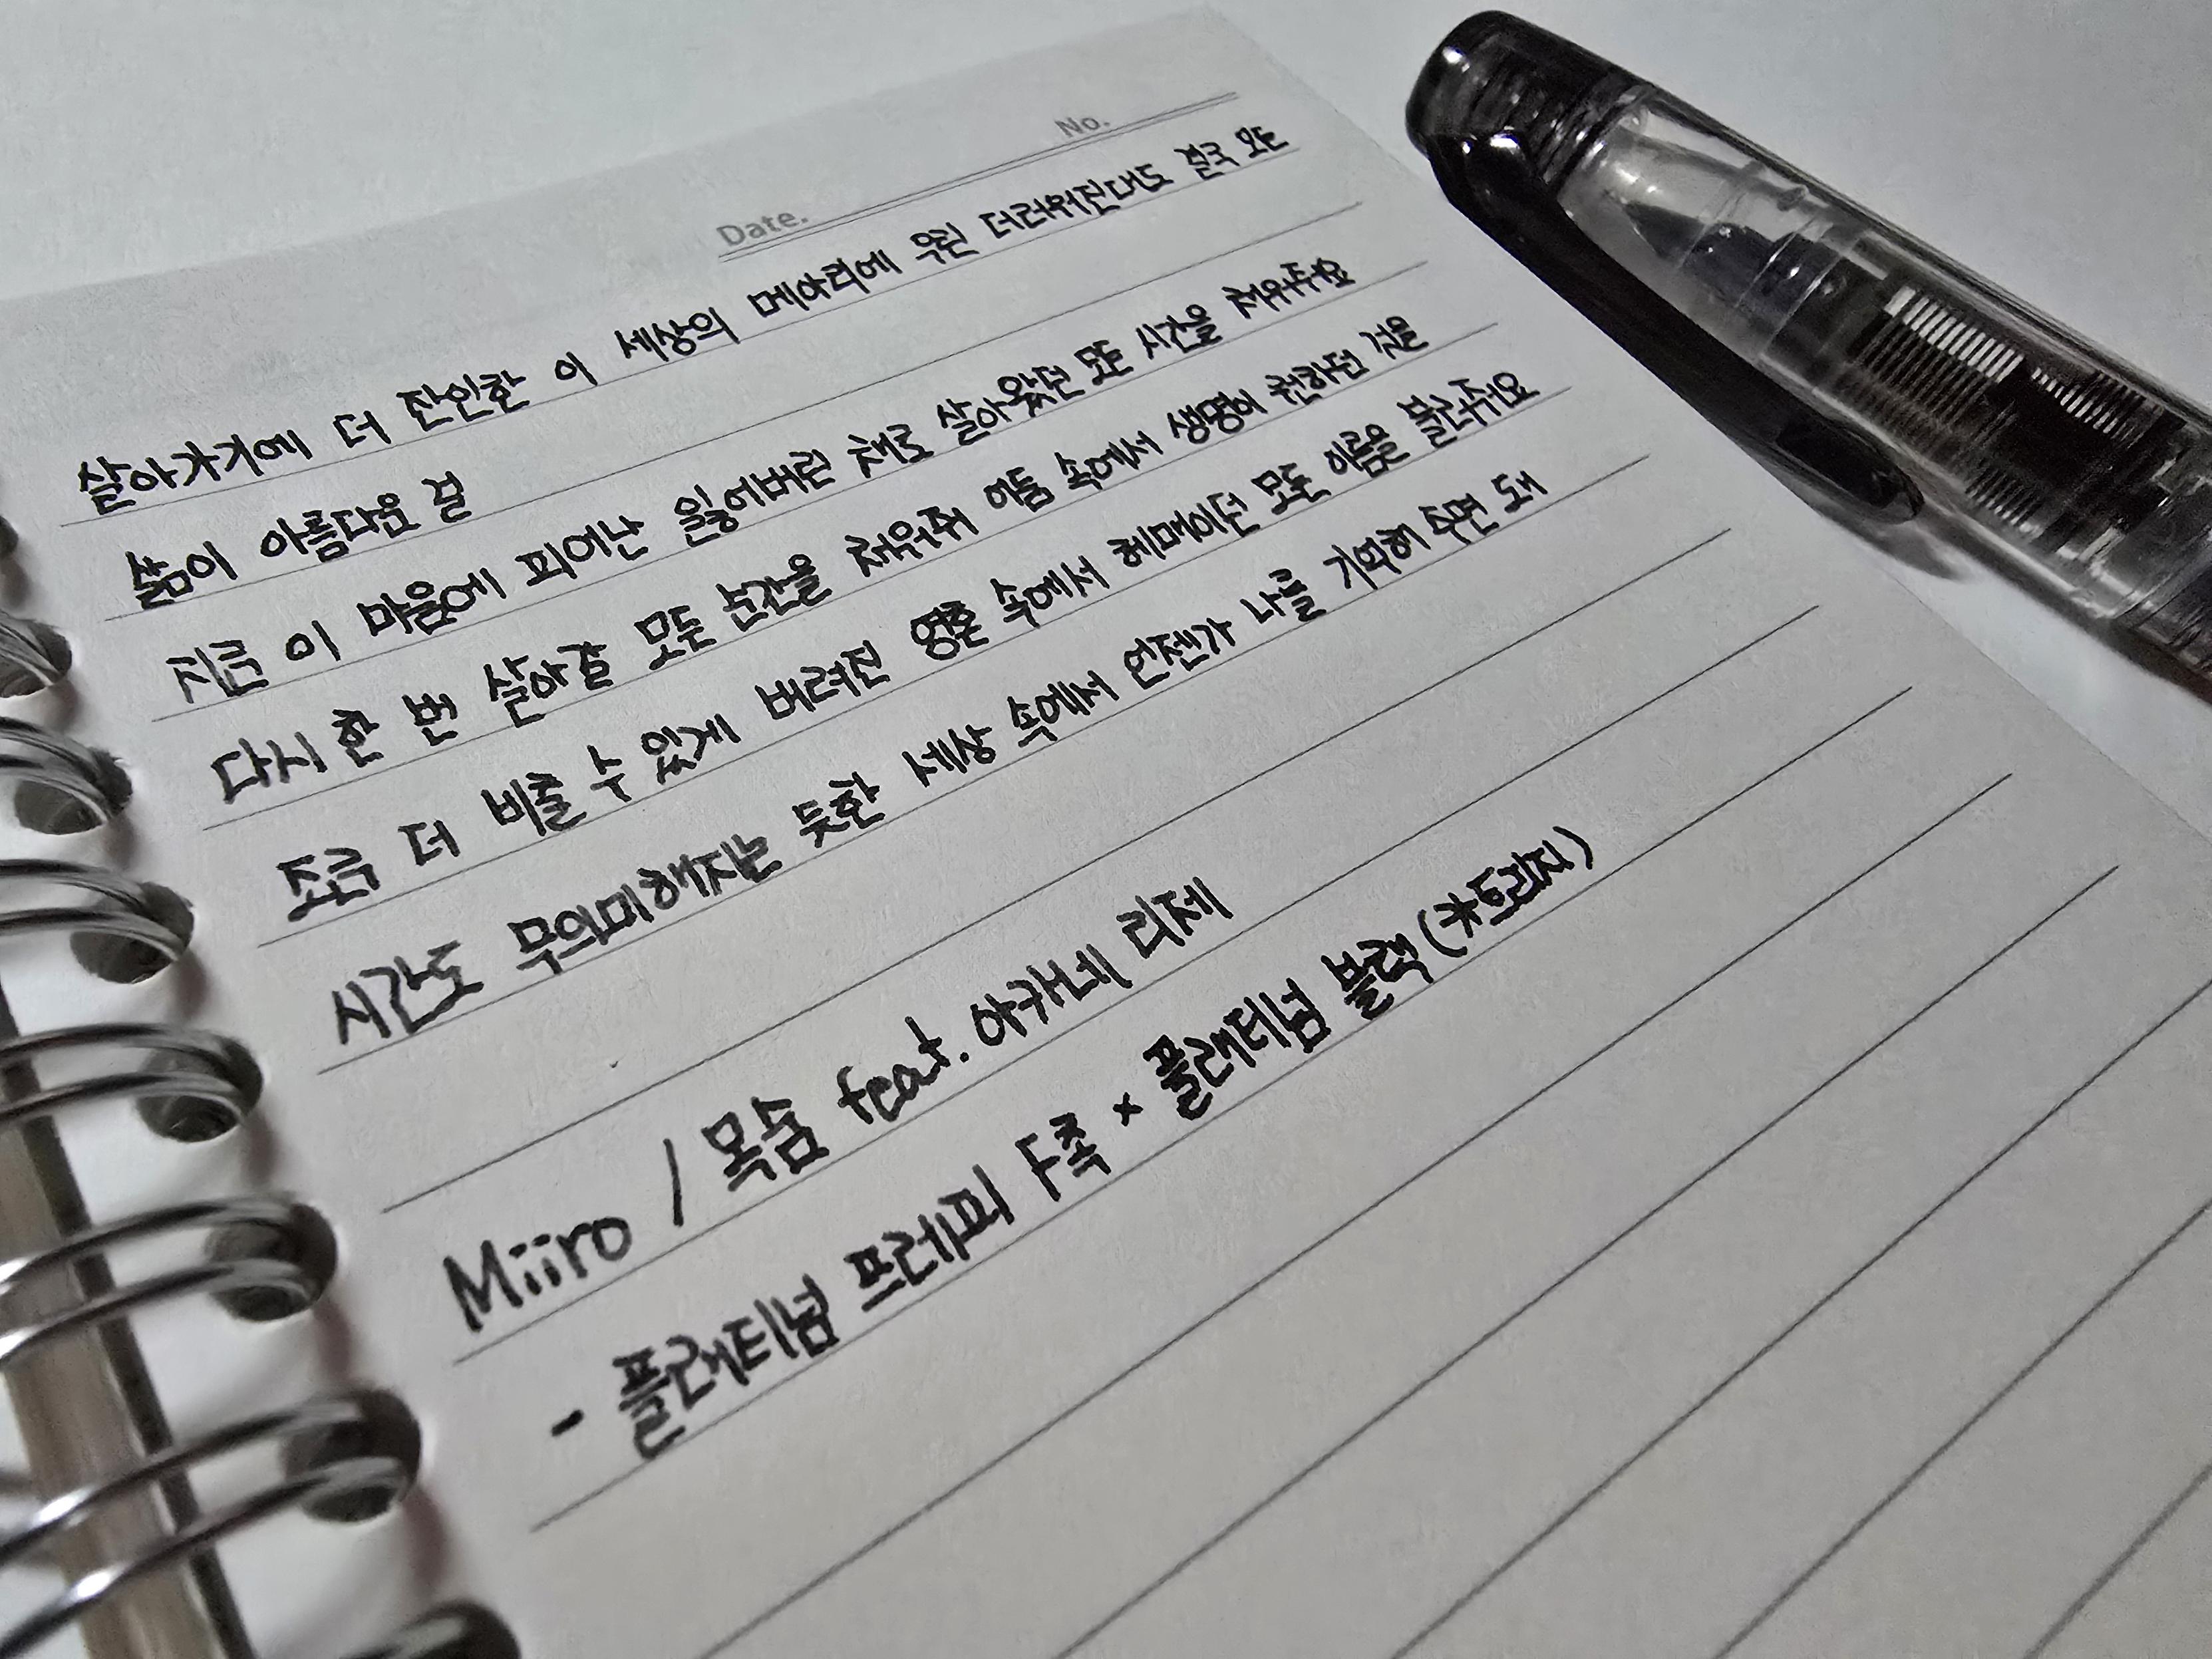 No.
Date.
살아가기에 더 잔인한 이 세상의 메아리에 우린 더러워진대도 결국 모든
삶이 아름다운 걸
지금 이 마음에 피어난 잃어버린 채로 살아왔던 모든 시간을 채워줘요
다시 한 번 살아갈 모든 순간을 채워줘 어둠 속에서 생명이 원하던 것을
조금 더 비출 수 있게 버려진 영혼 속에서 헤매이던 모든 이름을 불러줘요
시간도 무의미해지는 듯한 세상 속에서 언젠가 나를 기억해 주면 돼
Miiro / 목숨 feat. 아카네 리제
- 플래티넘 프레피 F촉 × 플래티넘 블랙 (카트리지)